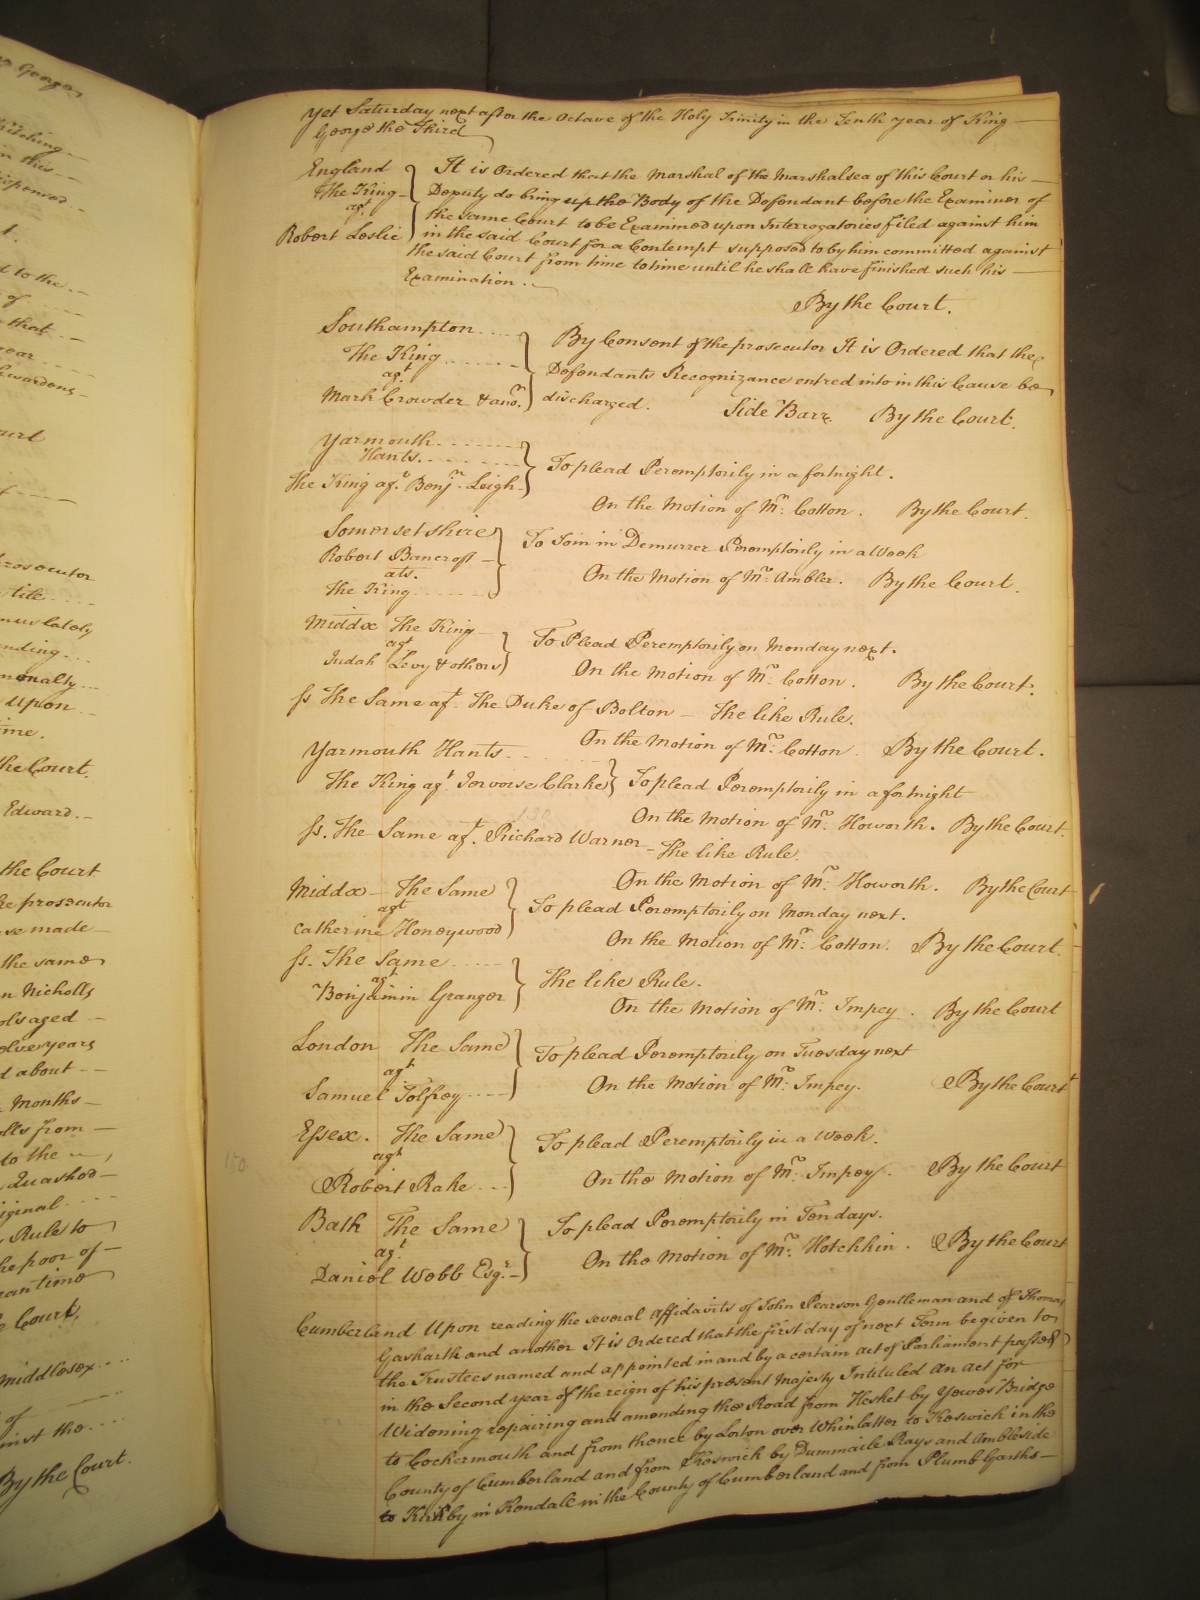 Yet Saturday next after the Octave of the Holy Trinity in the Tenth year of King
George the Third
England
The King
agt
Robert Leslie
It is Ordered that the Marshal of the Marshalsea of this Court or his
Deputy do bring up the Body of the Defendant before the Examiner of
the same Court to be Examined upon Interrogatories filed against him
in the said Court for a Contempt supposed to by him committed against
the said Court from time to time until he shall have finished such his
Examination.
By the Court.
Southampton
The King
agt
Mark Crowder & ano.
By Consent of the prosecutor It is Ordered that the
Defendants Recognizance entred into in this Cause be
discharged. Side Barr. By the Court.
Yarmouth
Hants
The King agt. Benjn. Leigh
To plead Peremptorily in a fortnight.
On the Motion of Mr. Cotton. By the Court.
Somersetshire
Robert Bancroft
ats.
The King
To Join in Demurrer Peremptorily in a Week
On the Motion of Mr. Ambler. By the Court.
Middx The King
agt
Judah Levy & others
To Plead Peremptorily on Monday next.
On the Motion of Mr. Cotton. By the Court.
ss The Same agt. The Duke of Bolton — The like Rule.
On the Motion of Mr. Cotton. By the Court.
Yarmouth Hants
The King agt Jervoise Clarke
To plead Peremptorily in a fortnight
On the Motion of Mr. Howorth. By the Court.
ss. The Same agt. Richard Warner — The like Rule.
On the Motion of Mr. Howorth. By the Court
Middx — The Same
agt
Catherine Honeywood
To plead Peremptorily on Monday next.
On the Motion of Mr. Cotton. By the Court.
ss. The Same
agt
Benjamin Granger
The like Rule.
On the Motion of Mr. Impey. By the Court
London The Same
agt
Samuel Tolfrey
To plead Peremptorily on Tuesday next
On the Motion of Mr. Impey. By the Court
Essex. The Same
agt
Robert Rake
To plead Peremptorily in a Week.
On the Motion of Mr. Impey. By the Court
Bath The Same
agt.
Daniel Webb Esqr.
To plead Peremptorily in Ten days.
On the Motion of Mr. Hotchkin. By the Court
Cumberland Upon reading the several affidavits of John Pearson Gentleman and of Thomas
Gaskarth and another It is Ordered that the first day of next Term be given to
the Trustees named and appointed in and by a certain act of Parliament passed
in the Second year of the reign of his present Majesty Intituled An act for
Widening repairing and amending the Road from Hesket by Yewes Bridge
to Cockermouth and from thence by Lorton over Whinlatter to Keswick in the
County of Cumberland and from Keswick by Dunmaile Rays and Ambleside
to Kirkby in Kendale in the County of Cumberland and from Plumb Garths